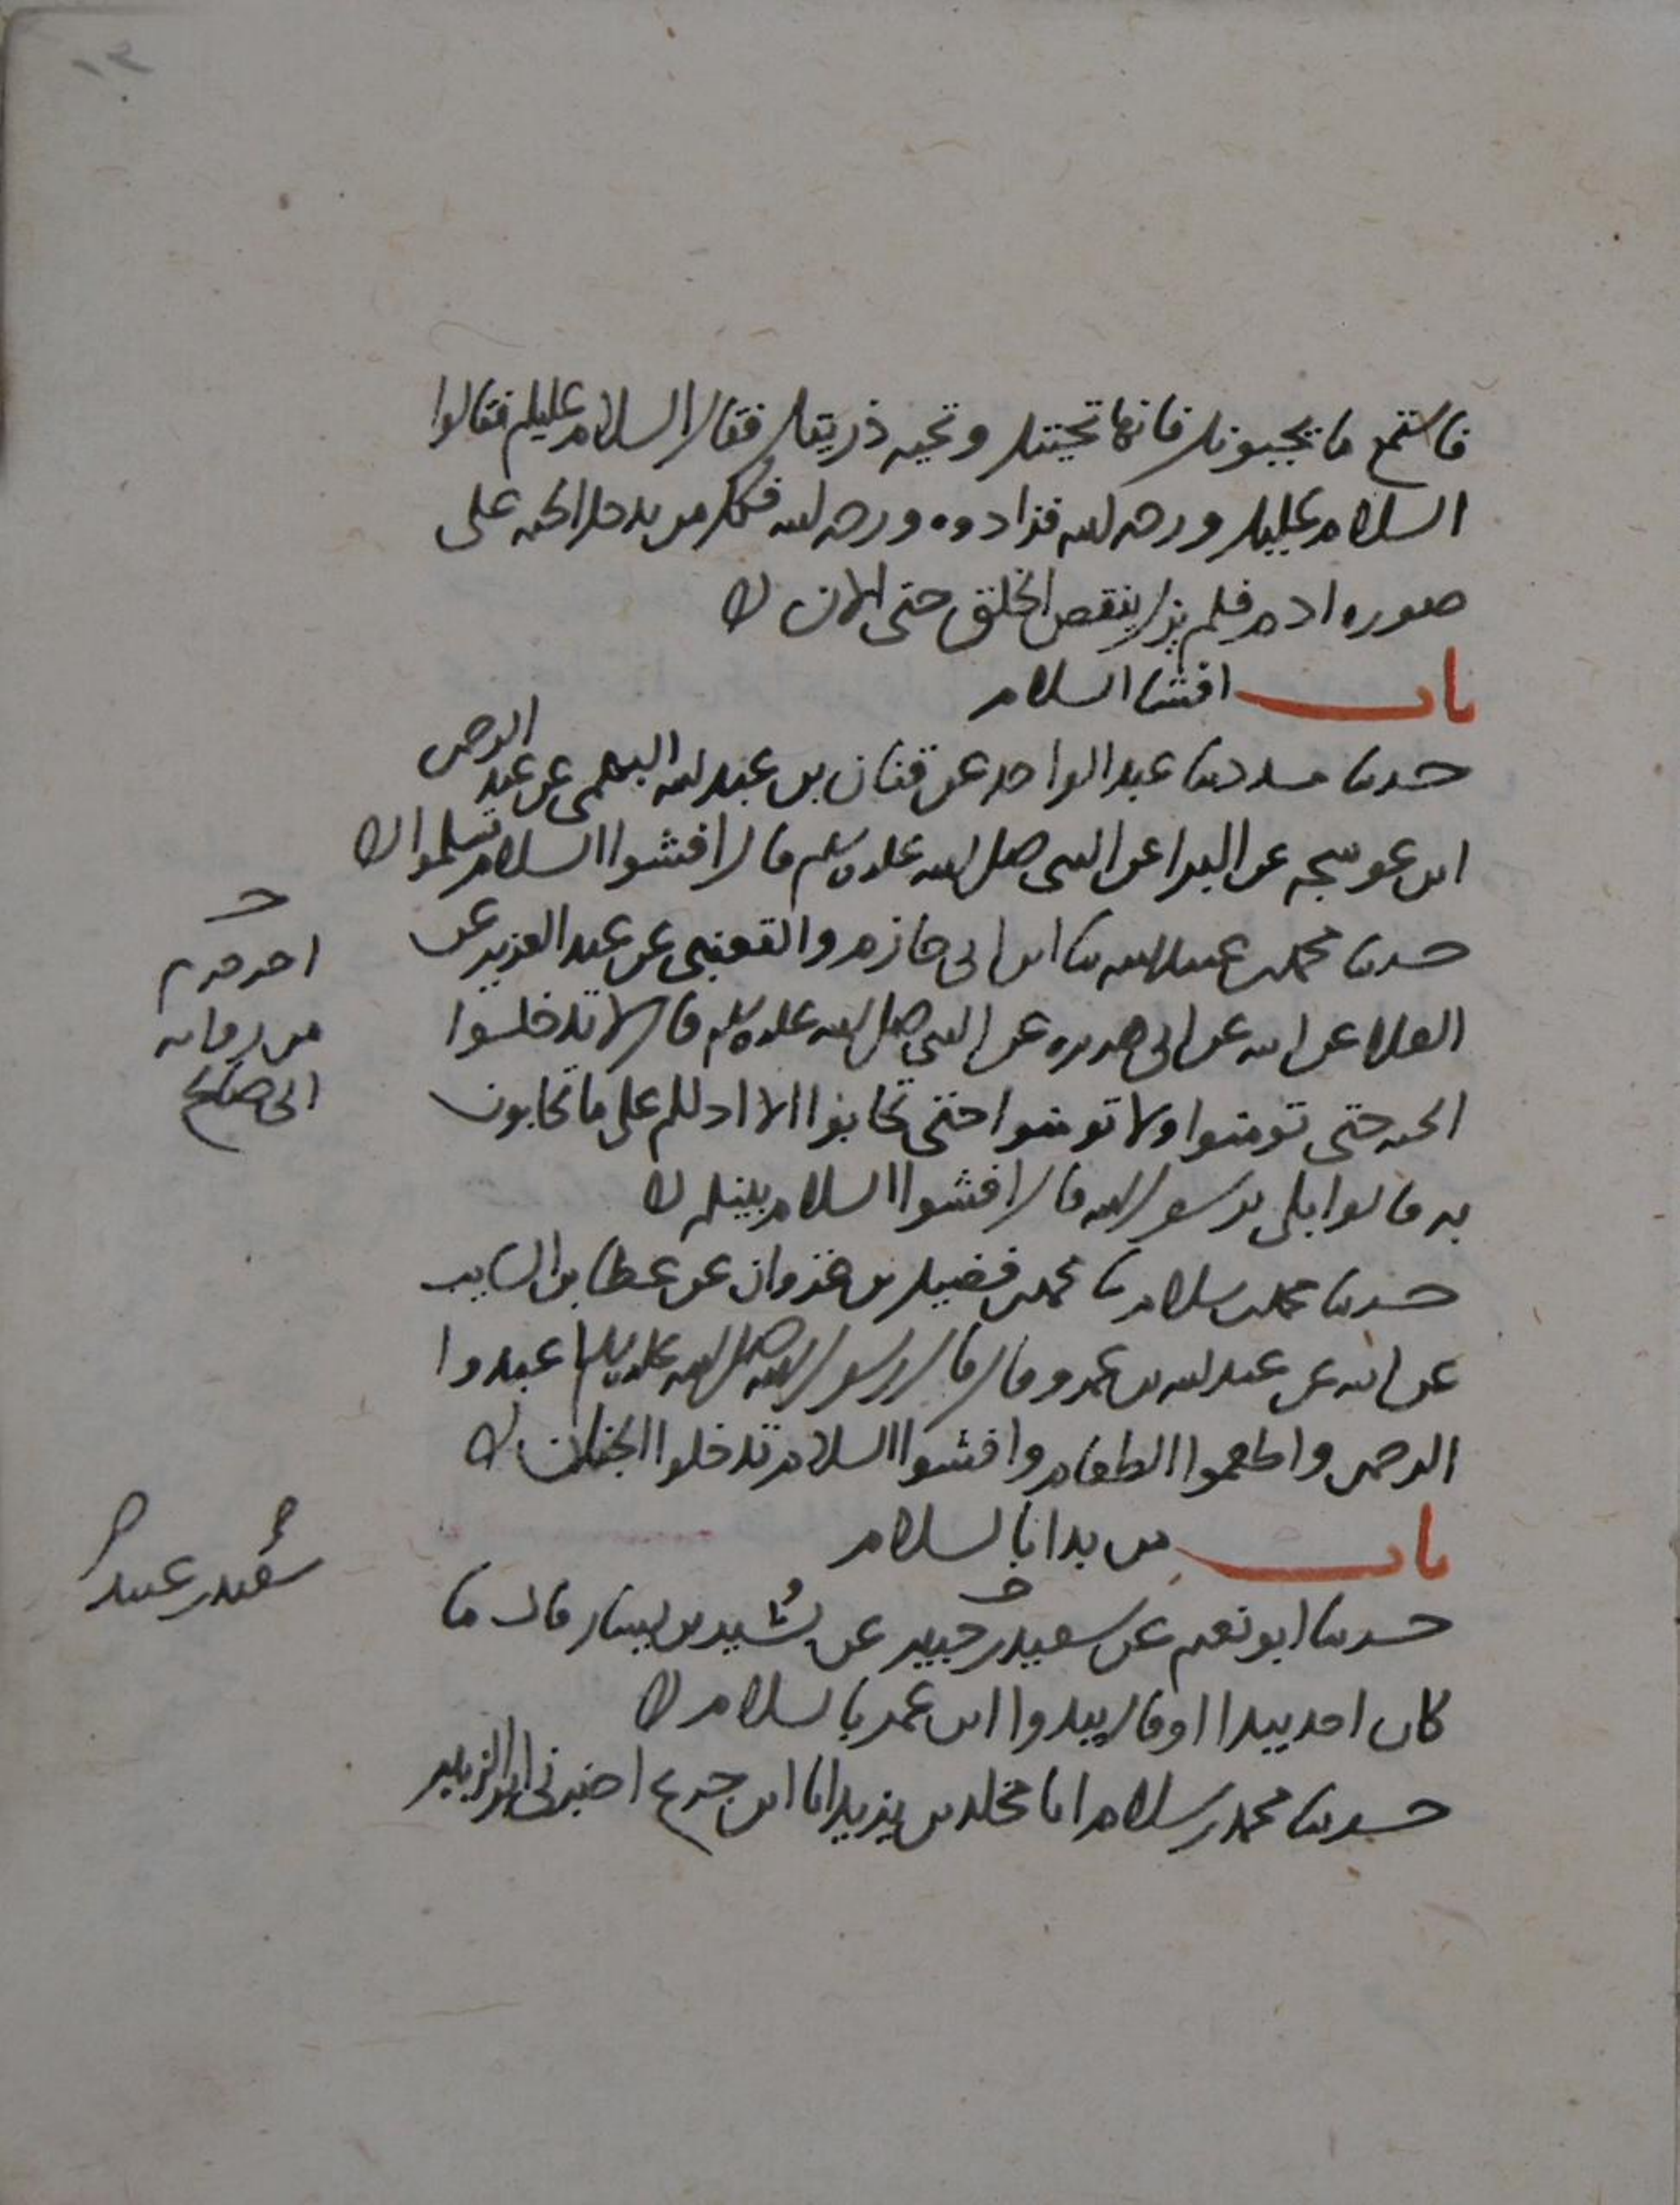 فاستمع ما يجيبونك فانها تحيتك وتحيه ذريتك فقال السلام عليكم فقالوا
السلام عليك ورحمه الله فزادوه ورحمه الله فكل من يدخل الجنه على
صوره ادم فلم يزل ينقص الخلق حتى الان
باب افشا السلام
حدثنا مسدد ثنا عبد الواحد عن قنان بن عبد الله النهمي عن عبد الرحمن
ابن عوسجه عن البرا عن النبي صلى الله عليه وسلم قال افشوا السلام تسلموا
حدثنا محمد بن عبيد الله ثنا ابن ابي حازم والقعنبي عن عبد العزيز عن
العلا عن ابيه عن ابي هريره عن النبي صلى الله عليه وسلم قال لا تدخلوا
الجنه حتى تومنوا ولا تومنوا حتى تحابوا الا ادلكم على ما تحابون
به قالوا بلى يرسول الله قال افشوا السلام بينكم
حدثنا محمد بن سلام ثنا محمد بن فضيل بن غزوان عن عطا بن السايب
عن ابيه عن عبد الله بن عمرو قال قال رسول الله صلى الله عليه وسلم اعبدوا
الرحمن واطعموا الطعام وافشوا السلام تدخلوا الجنان
باب من بدا بالسلام
حدثنا ابو نعيم عن سعيد بن جبير عن بشير بن يسار قال ما
كان احد يبدا او قال يبدوا ابن عمر بالسلام
حدثنا محمد بن سلام انا مخلد بن يزيد انا ابن جريج اخبرني ابو الزبير
اخرجه م
من روايه
ابي صالح
سعيد بن عبيد
١٢